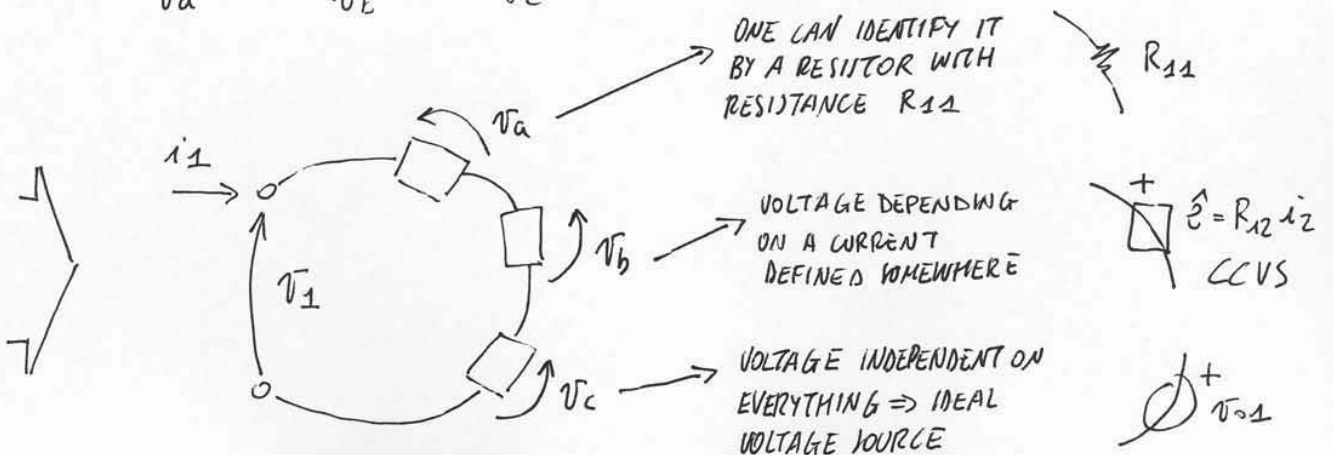 va vb vc
ONE CAN IDENTIFY IT
BY A RESISTOR WITH
RESISTANCE R11
R11
va
i1
VOLTAGE DEPENDING
ON A CURRENT
DEFINED SOMEWHERE
+
ê = R12 i2
CCVS
vb
v1
VOLTAGE INDEPENDENT ON
EVERYTHING ⇒ IDEAL
VOLTAGE SOURCE
+
v01
vc